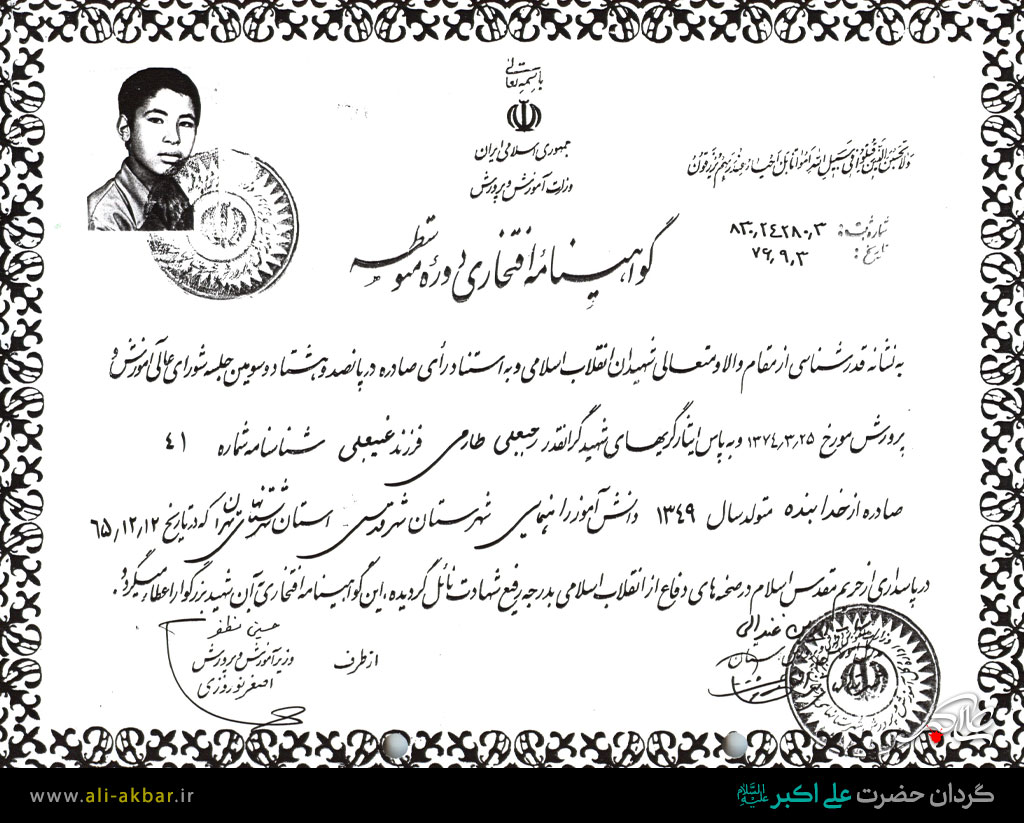 باسمه تعالی
جمهوری اسلامی ایران
وزارت آموزش و پرورش
ولا تحسبن الذین قتلوا فی سبیل الله امواتا بل احیاء عند ربهم یرزقون
شماره ثبت: ۸۳۰٫۲۴۲۸۰٫۳
تاریخ: ۷۶٫۹٫۳
گواهینامهٔ افتخاری دورهٔ متوسطه
به نشانه قدرشناسی از مقام والا و متعالی شهیدان انقلاب اسلامی و به استناد رأی صادره در پانصد و هشتاد و سومین جلسه شورای عالی آموزش و
پرورش مورخ ۱۳۷۴٫۳٫۲۵ و به پاس ایثارگریهای شهید گرانقدر رجبعلی طارمی فرزند غیبعلی شناسنامه شماره ۴۱
صادره از خدابنده متولد سال ۱۳۴۹ دانش آموز راهنمایی شهرستان شهر قدس استان شهرستانهای تهران که در تاریخ ۶۵٫۱۲٫۱۲
در پاسداری از حریم مقدس اسلام در صحنه های دفاع از انقلاب اسلامی بدرجه رفیع شهادت نائل گردیده، این گواهینامه افتخاری آن شهید بزرگوار اعطاء میگردد.
حسین مظفر
از طرف وزیر آموزش و پرورش
اصغر نوروزی
www.ali-akbar.ir
گردان حضرت علی اکبر علیه السلام